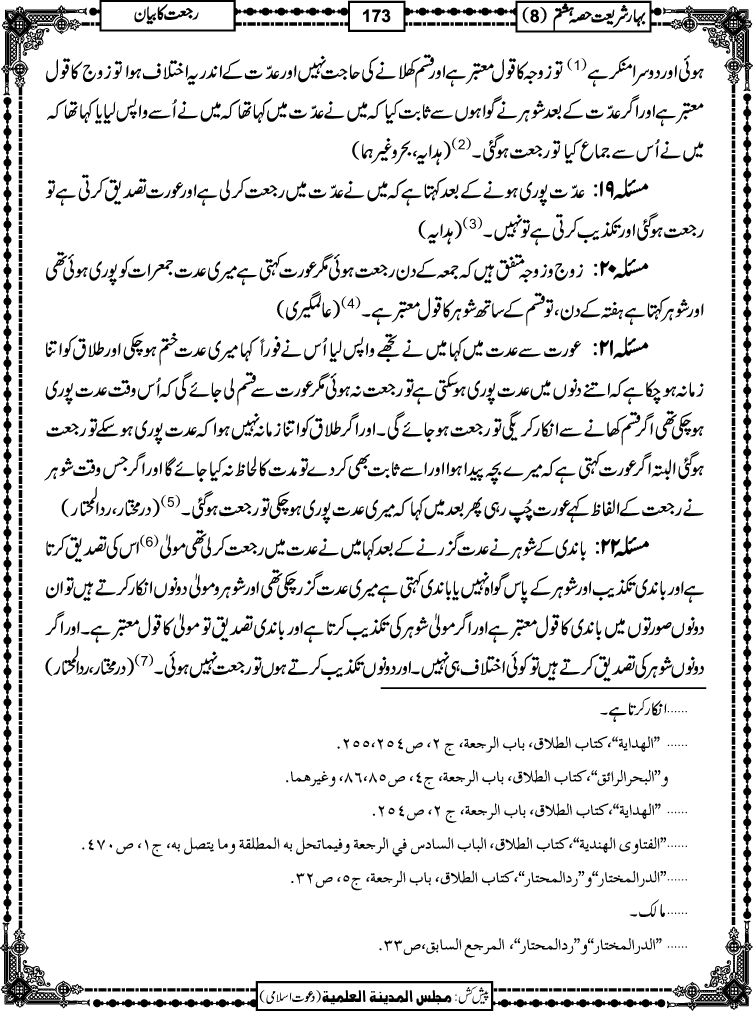 بہارِشریعت حصہ ہشتم (8)
173
رجعت کا بیان
ہوئی اور دوسرا منکر ہے (1) تو زوجہ کا قول معتبر ہے اور قسم کھلانے کی حاجت نہیں اور عدّت کے اندر یہ اختلاف ہوا تو زوج کا قول
معتبر ہے اور اگر عدّت کے بعد شوہر نے گواہوں سے ثابت کیا کہ میں نے عدّت میں کہا تھا کہ میں نے اُسے واپس لیا یا کہا تھا کہ
میں نے اُس سے جماع کیا تو رجعت ہوگئی۔(2) (ہدایہ، بحر وغیرہما)
مسئلہ ۱۹: عدّت پوری ہونے کے بعد کہتا ہے کہ میں نے عدّت میں رجعت کرلی ہے اور عورت تصدیق کرتی ہے تو
رجعت ہوگئی اور تکذیب کرتی ہے تو نہیں۔(3) (ہدایہ)
مسئلہ ۲۰: زوج و زوجہ متفق ہیں کہ جمعہ کے دن رجعت ہوئی مگر عورت کہتی ہے میری عدت جمعرات کو پوری ہوئی تھی
اور شوہر کہتا ہے ہفتہ کے دن، تو قسم کے ساتھ شوہر کا قول معتبر ہے۔(4) (عالمگیری)
مسئلہ ۲۱: عورت سے عدت میں کہا میں نے تجھے واپس لیا اُس نے فوراً کہا میری عدت ختم ہوچکی اور طلاق کو اتنا
زمانہ ہوچکا ہے کہ اتنے دنوں میں عدت پوری ہوسکتی ہے تو رجعت نہ ہوئی مگر عورت سے قسم لی جائے گی کہ اُس وقت عدت پوری
ہوچکی تھی اگر قسم کھانے سے انکار کریگی تو رجعت ہوجائے گی۔ اور اگر طلاق کو اتنا زمانہ نہیں ہوا کہ عدت پوری ہوسکے تو رجعت
ہوگئی البتہ اگر عورت کہتی ہے کہ میرے بچہ پیدا ہوا اور اسے ثابت بھی کردے تو مدت کا لحاظ نہ کیا جائے گا اور اگر جس وقت شوہر
نے رجعت کے الفاظ کہے عورت چُپ رہی پھر بعد میں کہا کہ میری عدت پوری ہوچکی تو رجعت ہوگئی۔(5) (درمختار، ردالمحتار)
مسئلہ ۲۲: باندی کے شوہر نے عدت گزرنے کے بعد کہا میں نے عدت میں رجعت کرلی تھی مولیٰ(6) اس کی تصدیق کرتا
ہے اور باندی تکذیب اور شوہر کے پاس گواہ نہیں یا باندی کہتی ہے میری عدت گزر چکی تھی اور شوہر و مولیٰ دونوں انکار کرتے ہیں تو ان
دونوں صورتوں میں باندی کا قول معتبر ہے اور اگر مولیٰ شوہر کی تکذیب کرتا ہے اور باندی تصدیق تو مولیٰ کا قول معتبر ہے۔ اور اگر
دونوں شوہر کی تصدیق کرتے ہیں تو کوئی اختلاف ہی نہیں۔ اور دونوں تکذیب کرتے ہوں تو رجعت نہیں ہوئی۔(7) (درمختار، ردالمحتار)
......انکار کرتا ہے۔
......”الهداية“، كتاب الطلاق، باب الرجعة، ج ٢، ص٢٥٤، ٢٥٥.
و”البحرالرائق“، كتاب الطلاق، باب الرجعة، ج٤، ص٨٥، ٨٦، وغيرهما.
......”الهداية“، كتاب الطلاق، باب الرجعة، ج ٢، ص٢٥٤.
......”الفتاوى الهندية“، كتاب الطلاق، الباب السادس في الرجعة وفيماتحل به المطلقة وما يتصل به، ج١، ص٤٧٠.
......”الدرالمختار“و”ردالمحتار“، كتاب الطلاق، باب الرجعة، ج٥، ص٣٢.
......مالک۔
......”الدرالمختار“و”ردالمحتار“، المرجع السابق، ص٣٣.
پیش کش: مجلس المدينة العلمية (دعوت اسلامی)